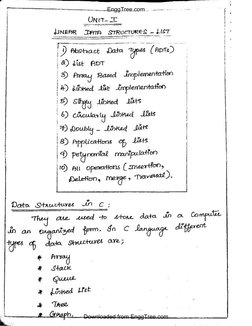 EnggTree.com
UNIT-I
LINEAR DATA STRUCTURES - LIST
1) Abstract Data Types (ADTs)
2) List ADT
3) Array Based implementation
4) Linked list implementation
5) Singly linked lists
6) Circularly linked lists
7) Doubly-linked lists
8) Applications of lists
9) Polynomial manipulation
10) All operations (Insertion,
Deletion, Merge, Traversal).
Data Structures in C:
They are used to store data in a Computer
in an organized form. In C language different
types of data structures are;
* Array
* Stack
* Queue
* Linked List
* Tree
* Graph.
Downloaded from EnggTree.com